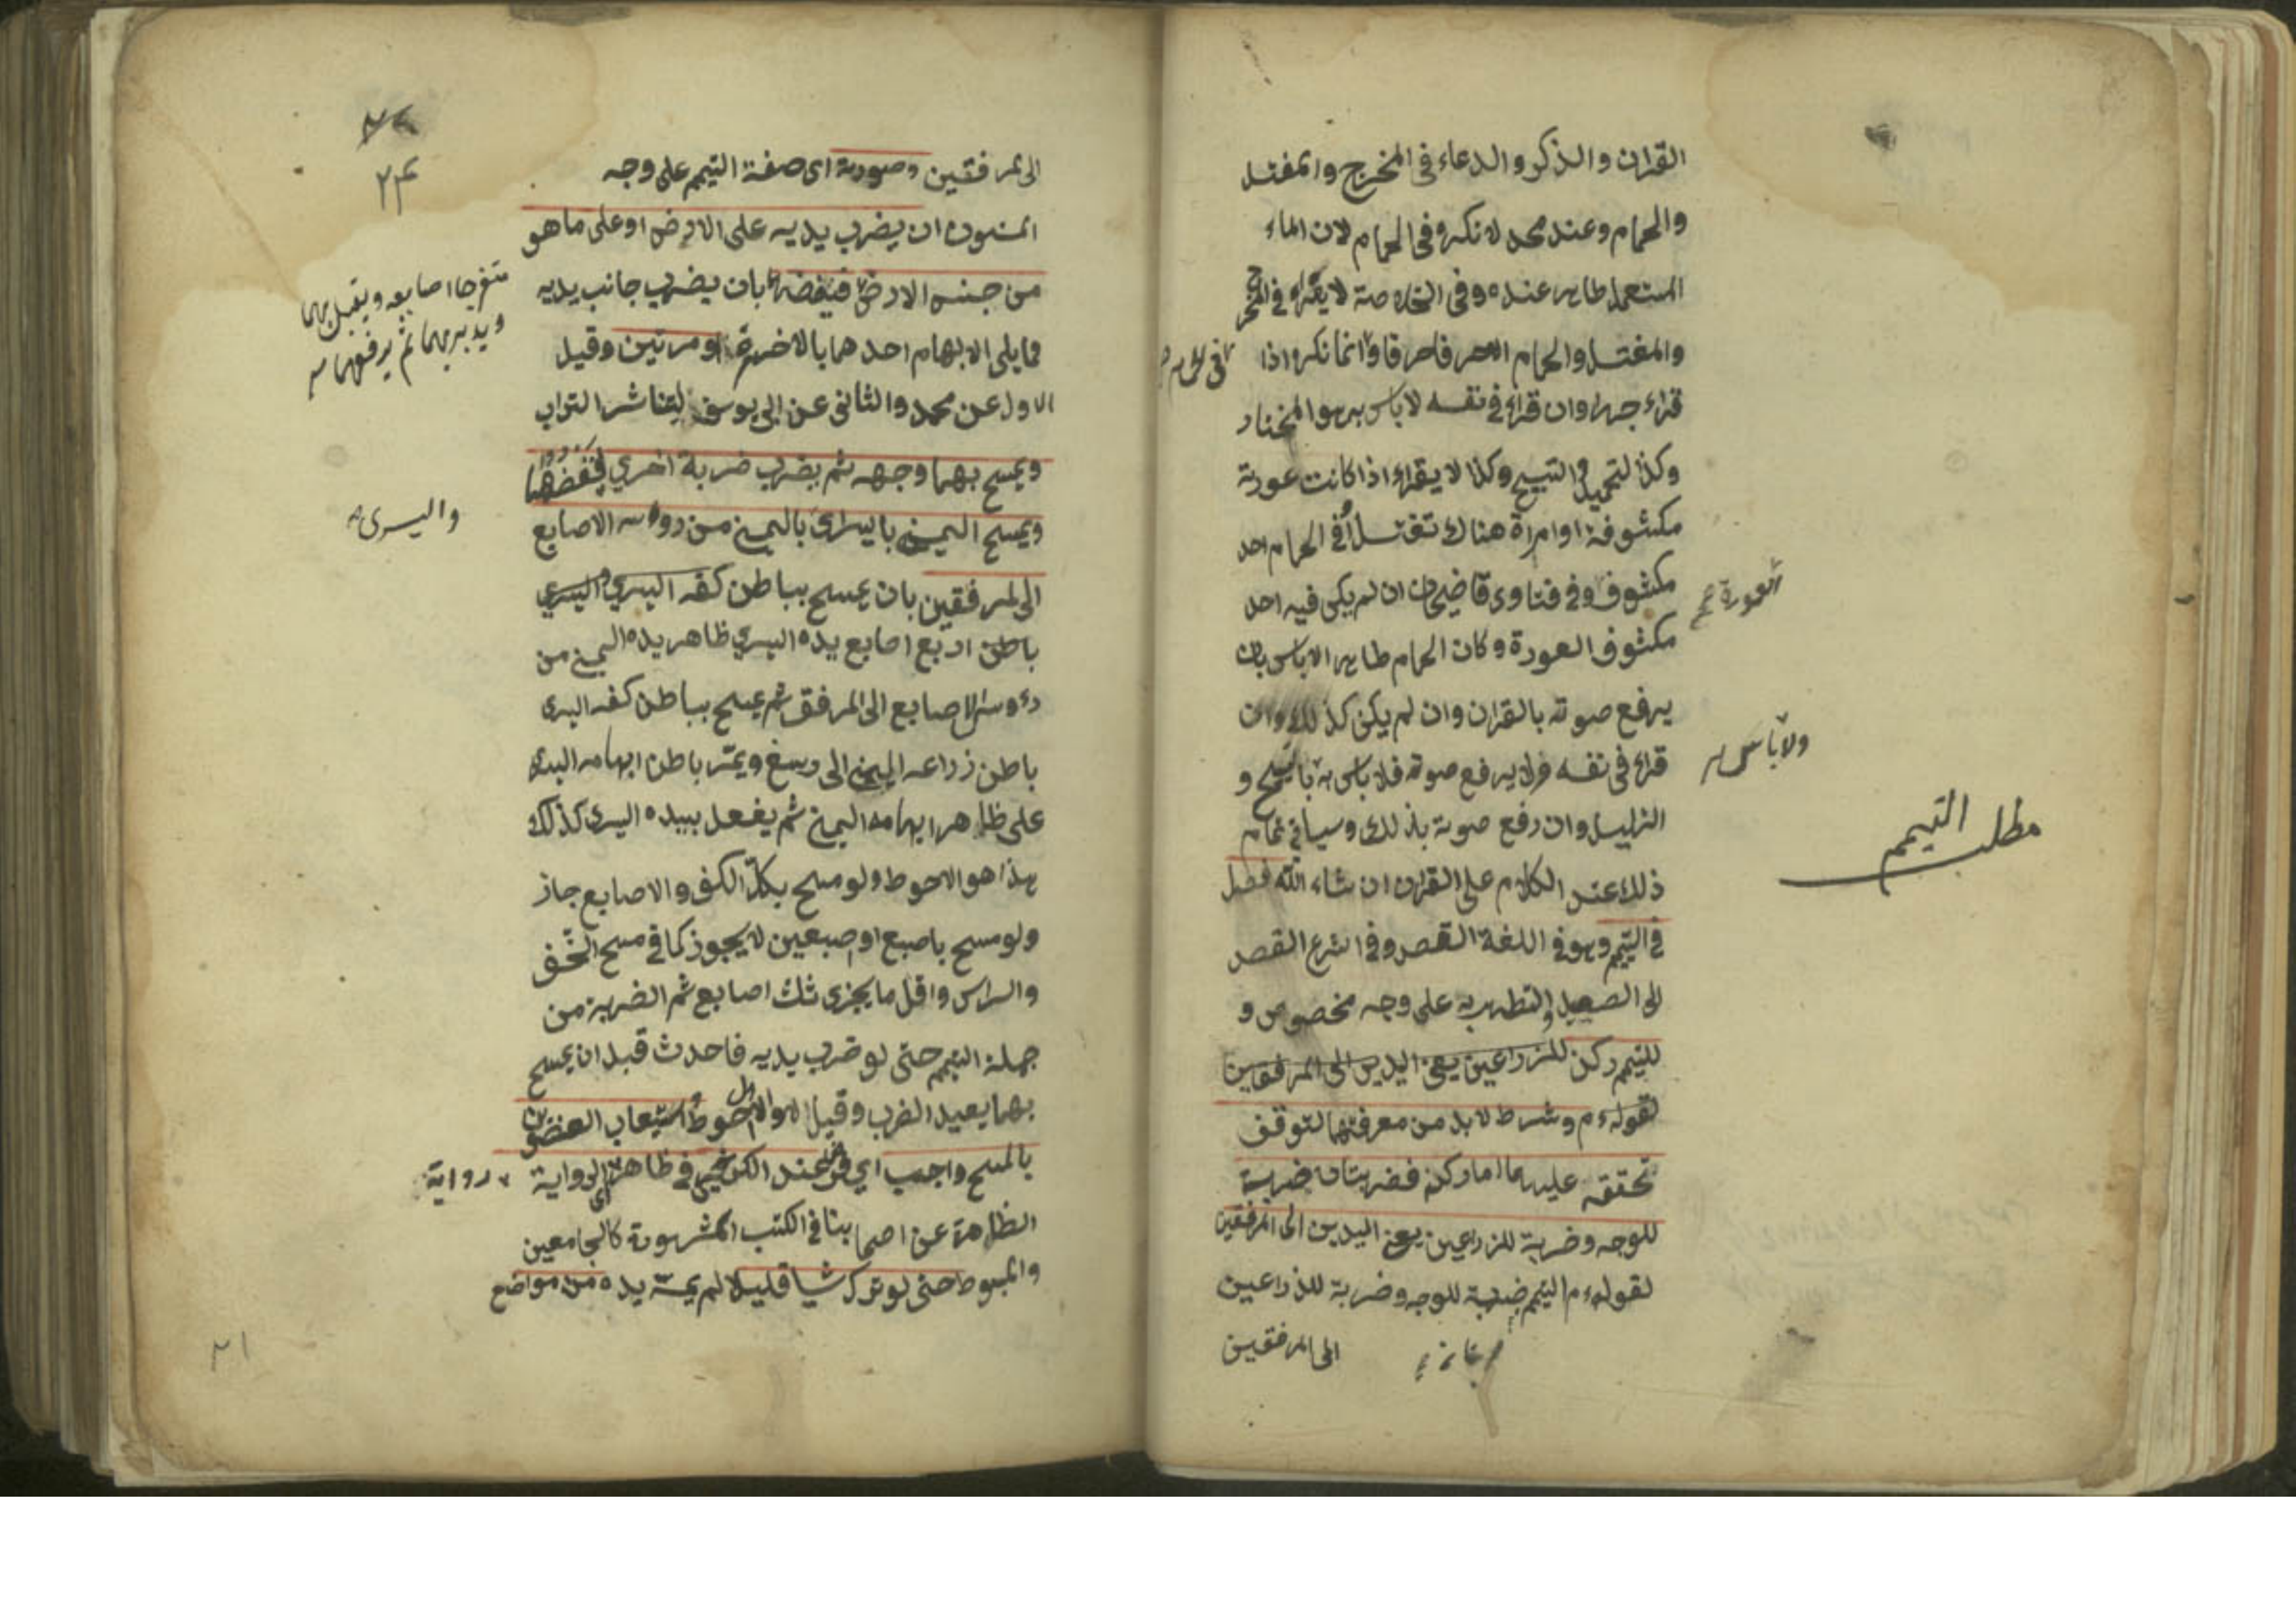 القران والذكر والدعاء في المخرج والمغتسل
والحمام وعند محمد لا تكره في الحمام لان الماء
المستعمل طاهر عنده وفي الخلاصة لا يقراء في المخرج
والمغتسل والحمام الا حرفا حرفا وانما تكره اذا
قراء جهرا وان قراء في نفسه لا باس به هو المختار
وكذا التحميد والتسبيح وكذا لا يقراء اذا كانت عورته
مكشوفة او امراة هناك تغتسل او في الحمام احد
مكشوف وفي فتاوى قاضيخان ان لم يكن فيه احد
العورة صح
مكشوف العورة وكان الحمام طاهرا لا باس بان
يرفع صوته بالقران وان لم يكن كذلك وان
قراء في نفسه ولا يرفع صوته فلا باس به بالتسبيح و
ولا باس
التهليل وان رفع صوته بذلك وسياتي تمام
مطلب التيمم
ذلك عند الكلام على القران ان شاء الله فصل
في التيمم وهو في اللغة القصد وفي الشرع القصد
الى الصعيد والتطهر به على وجه مخصوص و
للتيمم ركن للذراعين يعني اليدين الى المرفقين
لقوله ءم وشرط لا بد من معرفتهما لتوقف
تحققه عليهما اما ركنه فضربتان ضربة
للوجه وضربة للذراعين يعني اليدين الى المرفقين
لقوله ءم التيمم ضربة للوجه وضربة للذراعين
الى المرفقين
٢٤
الى المرفقين وصورته اى صفة التيمم على وجه
المسنون ان يضرب يديه على الارض او على ما هو
منفرجا اصابعه ويقبل بهما
ويدبر بهما ثم يرفعهما
من جنس الارض فينفضهما بان يضرب جانب يديه
مما يلى الابهام احدهما بالاخر مرة او مرتين وقيل
الاول عن محمد والثانى عن ابى يوسف ليتناثر التراب
ويمسح بهما وجهه ثم يضرب ضربة اخري فينفضهما
واليسرى
ويمسح اليمنى باليسرى باليمنى من رؤس الاصابع
الى المرفقين بان يمسح بباطن كفه اليسري اليسري
باطن اربع اصابع يده اليسري ظاهر يده اليمنى من
رؤس الاصابع الى المرفق ثم يمسح بباطن كفه اليسرى
باطن ذراعه اليمنى الى رسغ ويمر باطن ابهامه اليسرى
على ظاهر ابهامه اليمنى ثم يفعل بيده اليسرى كذلك
هذا هو الاحوط ولو مسح بكل الكف والاصابع جاز
ولو مسح باصبع او اصبعين لا يجوز كما في مسح الخف
والراس واقل ما يجزى ثلث اصابع ثم الضربة من
جملة التيمم حتى لو ضرب يديه فاحدث قبل ان يمسح
بهما يعيد الضرب وقيل لا والاول احوط واستيعاب العضوين
بالمسح واجب اي فرض عند الكرخي في ظاهر الرواية
رواية
الظاهرة عن اصحابنا في الكتب المشهورة كالجامعين
والمبسوط حتى لو ترك شيا قليلا لم يمسه يده من مواضع
٢١